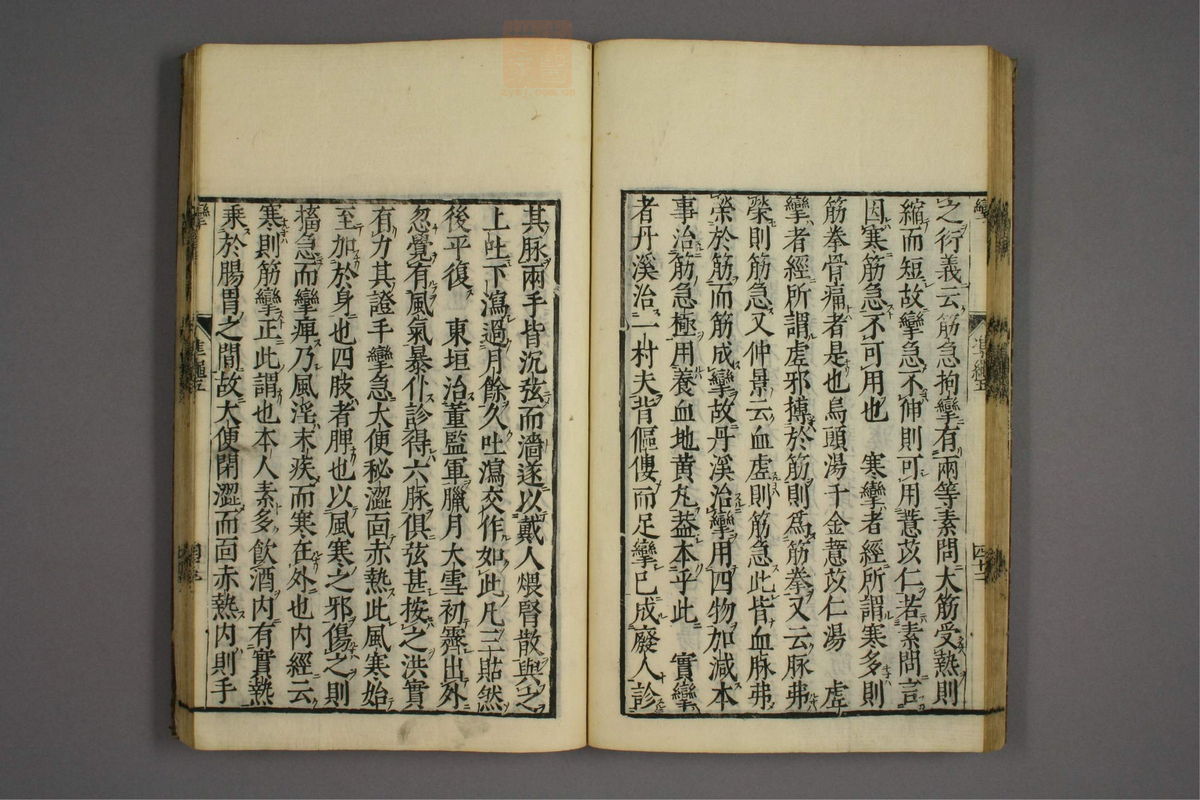 之衍義云筋急拘攣有兩等素問大筋受熱則
縮而短故攣急不伸則可用薏苡仁若素問言
因寒筋急不可用也　寒攣者經所謂寒多則
筋拳骨痛者是也烏頭湯千金薏苡仁湯　虛
攣者經所謂虛邪搏於筋則爲筋拳又云脉弗
榮則筋急又仲景云血虛則筋急此皆血脉弗
榮於筋而筋成攣故丹溪治攣用四物加減本
事治筋急極用養血地黃丸葢本乎此　實攣
者丹溪治一村夫背傴僂而足攣已成廢人診
其脉兩手皆沉弦而濇遂以戴人煨腎散與之
上吐下瀉過月餘久吐瀉交作如此凡三貼然
後平復　東垣治董監軍臘月大雪初霽出外
忽覺有風氣暴仆診得六脉俱弦甚按之洪實
有力其證手攣急大便秘澀面赤熱此風寒始
至加於身也四肢者脾也以風寒之邪傷之則
搐急而攣痺乃風淫末疾而寒在外也内經云
寒則筋攣正此謂也本人素多飲酒内有實熱
乘於腸胃之間故大便閉澀而面赤熱内則手
攣
準繩五